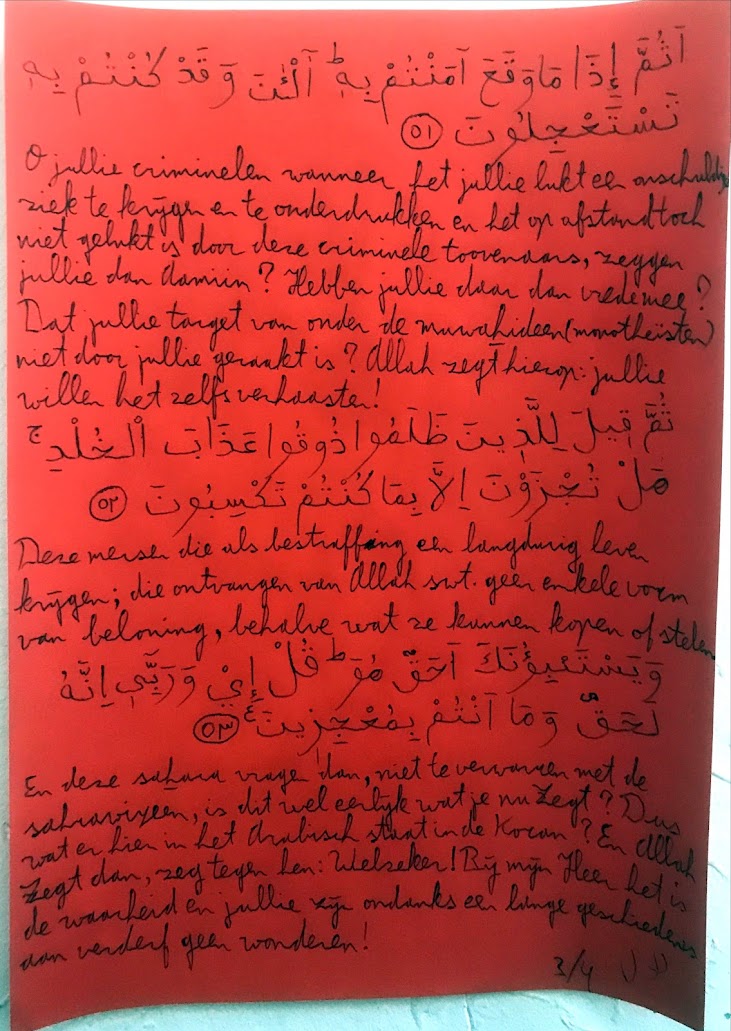 اَثُمَّ إِذَا مَا وَقَعَ آمَنْتُمْ بِهِ ۗ آلْئٰنَ وَقَدْ كُنْتُمْ بِهِ
تَسْتَعْجِلُونَ (٥١)
O jullie criminelen wanneer het jullie lukt een onschuldige
ziek te krijgen en te onderdrukken en het op afstand toch
niet gelukt is door deze criminele toovenaars, zeggen
jullie dan damiin? Hebben jullie daar dan vrede mee?
Dat jullie target van onder de muwahideen (monotheïsten)
niet door jullie geraakt is? Allah zegt hierop: jullie
willen het zelfs verhaasten!
ثُمَّ قِيلَ لِلَّذِينَ ظَلَمُوا ذُوقُوا عَذَابَ الْخُلْدِ ۚ
هَلْ تُجْزَوْنَ اِلاَّ بِمَا كُنْتُمْ تَكْسِبُونَ (٥٢)
Deze mensen die als bestraffing een langdurig leven
krijgen; die ontvangen van Allah swt. geen enkele vorm
van beloning, behalve wat ze kunnen kopen of stelen
وَيَسْتَنْبِؤُنَكَ اَحَقٌّ هُوَ ۗ قُلْ إِيْ وَرَبِّي اِنَّهُ
لَحَقٌّ وَمَا اَنْتُمْ بِمُعْجِزِينَ (٥٣)
En deze sahara vragen dan, niet te verwarren met de
sahrawixeen, is dit wel eerlijk wat je nu zegt? Dus
wat er hier in het Arabisch staat in de Koran? En Allah
zegt dan, zeg tegen hen: Welzeker! Bij mijn Heer het is
de waarheid en jullie zijn ondanks een lange geschiedenis
aan verderf geen wonderen!
3/4